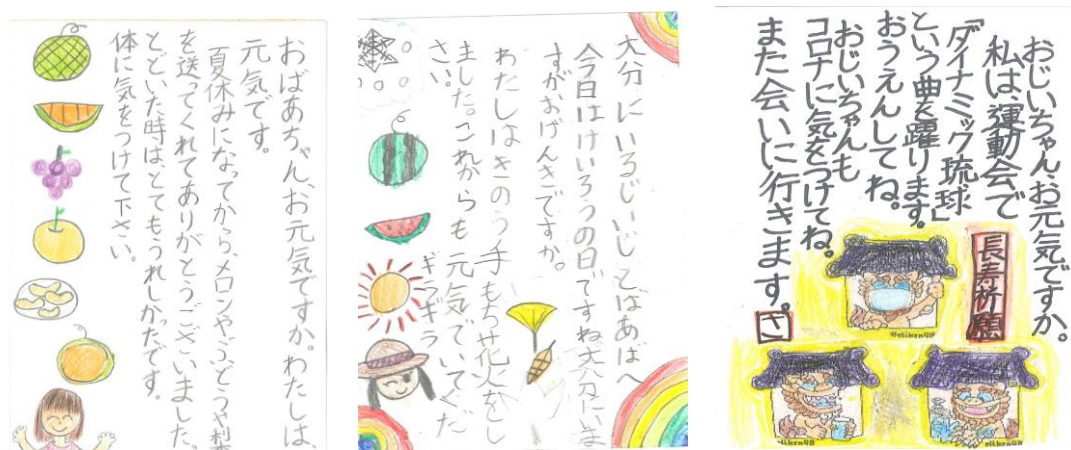 おばあちゃん、お元気ですか。わたしは、
元気です。
夏休みになってから、メロンやぶどうや梨
を送ってくれてありがとうございました。
とどいた時は、とてもうれしかったです。
体に気をつけて下さい。
大分にいるじいじとばあばへ
今日はけいろうの日ですね大分にいま
すがおげんきですか。
わたしはきのう手もち花火をし
ました。これからも元気でいてくだ
さい。
ギラギラ
おじいちゃん、お元気ですか。
私は、運動会で
「ダイナミック琉球」
という曲を躍ります。
おうえんしてね。
おじいちゃんも
コロナに気をつけてね。
また会いに行きます。
長寿祈願